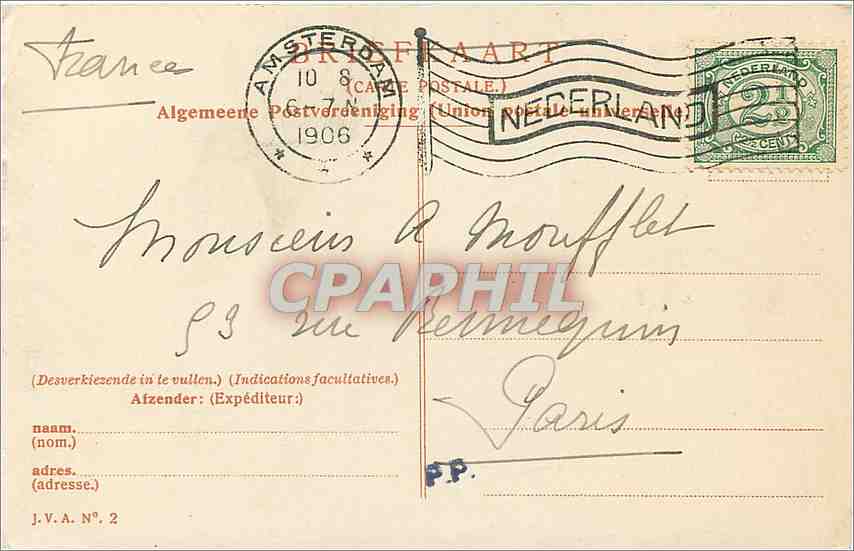 France
BRIEFKAART
(CARTE POSTALE.)
Algemeene Postvereeniging (Union postale universelle)
AMSTERDAM
10 8
6-7 N
1906
NEDERLAND
NEDERLAND
2½
CENT
Monsieur A Moufflet
CPAPHIL
53 rue Rennequin
Paris
(Desverkiezende in te vullen.) (Indications facultatives.)
Afzender: (Expéditeur:)
naam.
(nom.)
adres.
(adresse.)
P.P.
J. V. A. Nº. 2